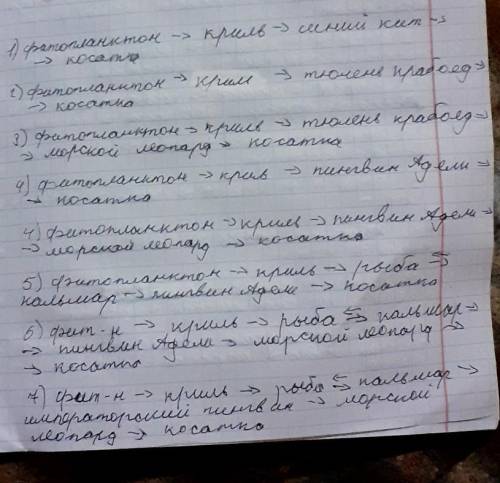 1) фитопланктон → криль → синий кит →
→ косатка
2) фитопланктон → крил → тюлень крабоед →
→ косатка
3) фитопланктон → криль → тюлень крабоед →
→ морской леопард → косатка
4) фитопланктон → криль → пингвин Адели →
→ косатка
4) фитопланктон → криль → пингвин Адели →
→ морской леопард → косатка
5) фитопланктон → криль → рыба ⇆
кальмар → пингвин Адели → косатка
6) фит-н → криль → рыба ⇆ кальмар →
→ пингвин Адели → морской леопард →
→ косатка
7) фит-н → криль → рыба ⇆ кальмар →
императорский пингвин → морской
леопард → косатка